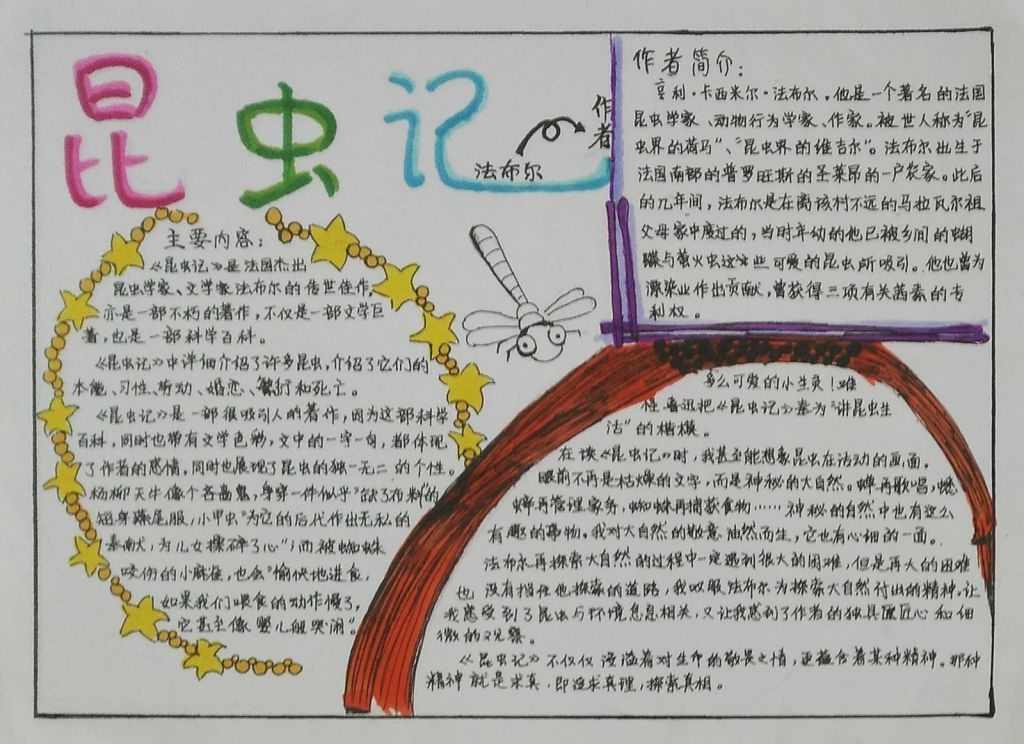 昆虫记
法布尔
作者
作者简介：
亨利·卡西米尔·法布尔，他是一个著名的法国
昆虫学家、动物行为学家、作家。被世人称为“昆
虫界的荷马”、“昆虫界的维吉尔”。法布尔出生于
法国南部的普罗旺斯的圣莱昂的一户农家。此后
的几年间，法布尔是在离该村不远的马拉瓦尔祖
父母家中度过的，当时年幼的他已被乡间的蝴
蝶与萤火虫这些可爱的昆虫所吸引。他也曾为
漂染业作出贡献，曾获得三项有关茜素的专
利权。
主要内容：
《昆虫记》是法国杰出
昆虫学家、文学家法布尔的传世佳作，
亦是一部不朽的著作，不仅是一部文学巨
著，也是一部科学百科。
《昆虫记》中详细介绍了许多昆虫，介绍了它们的
本能、习性、劳动、婚恋、繁衍和死亡。
《昆虫记》是一部很吸引人的著作，因为这部科学
百科，同时也带有文学色彩，文中的一字一句，都体现
了作者的感情，同时也展现了昆虫的独一无二的个性。
杨柳天牛像个吝啬鬼，身穿一件似乎“缺了布料”的
短身燕尾服，小甲虫“为它的后代作出无私的
奉献，为儿女操碎了心”；而被蜘蛛
咬伤的小麻雀，也会“愉快地进食，
如果我们喂食的动作慢了，
它甚至像婴儿般哭闹”。
多么可爱的小生灵！难
怪鲁迅把《昆虫记》奉为“讲昆虫生
活”的楷模。
在读《昆虫记》时，我甚至能想象昆虫在活动的画面，
眼前不再是枯燥的文字，而是神秘的大自然。蝉再歌唱，蟋
蟀再管理家务，蜘蛛再捕获食物……神秘的自然中也有这么
有趣的事物。我对大自然的敬意油然而生，它也有心细的一面。
法布尔再探索大自然的过程中一定遇到很大的困难，但是再大的困难
也没有挡住他探索的道路，我叹服法布尔为探索大自然付出的精神，让
我感受到了昆虫与环境息息相关，又让我感到了作者的独具匠心和细
微的观察。
《昆虫记》不仅仅浸溢着对生命的敬畏之情，更蕴含着某种精神。那种
精神就是求真，即追求真理，探索真相。